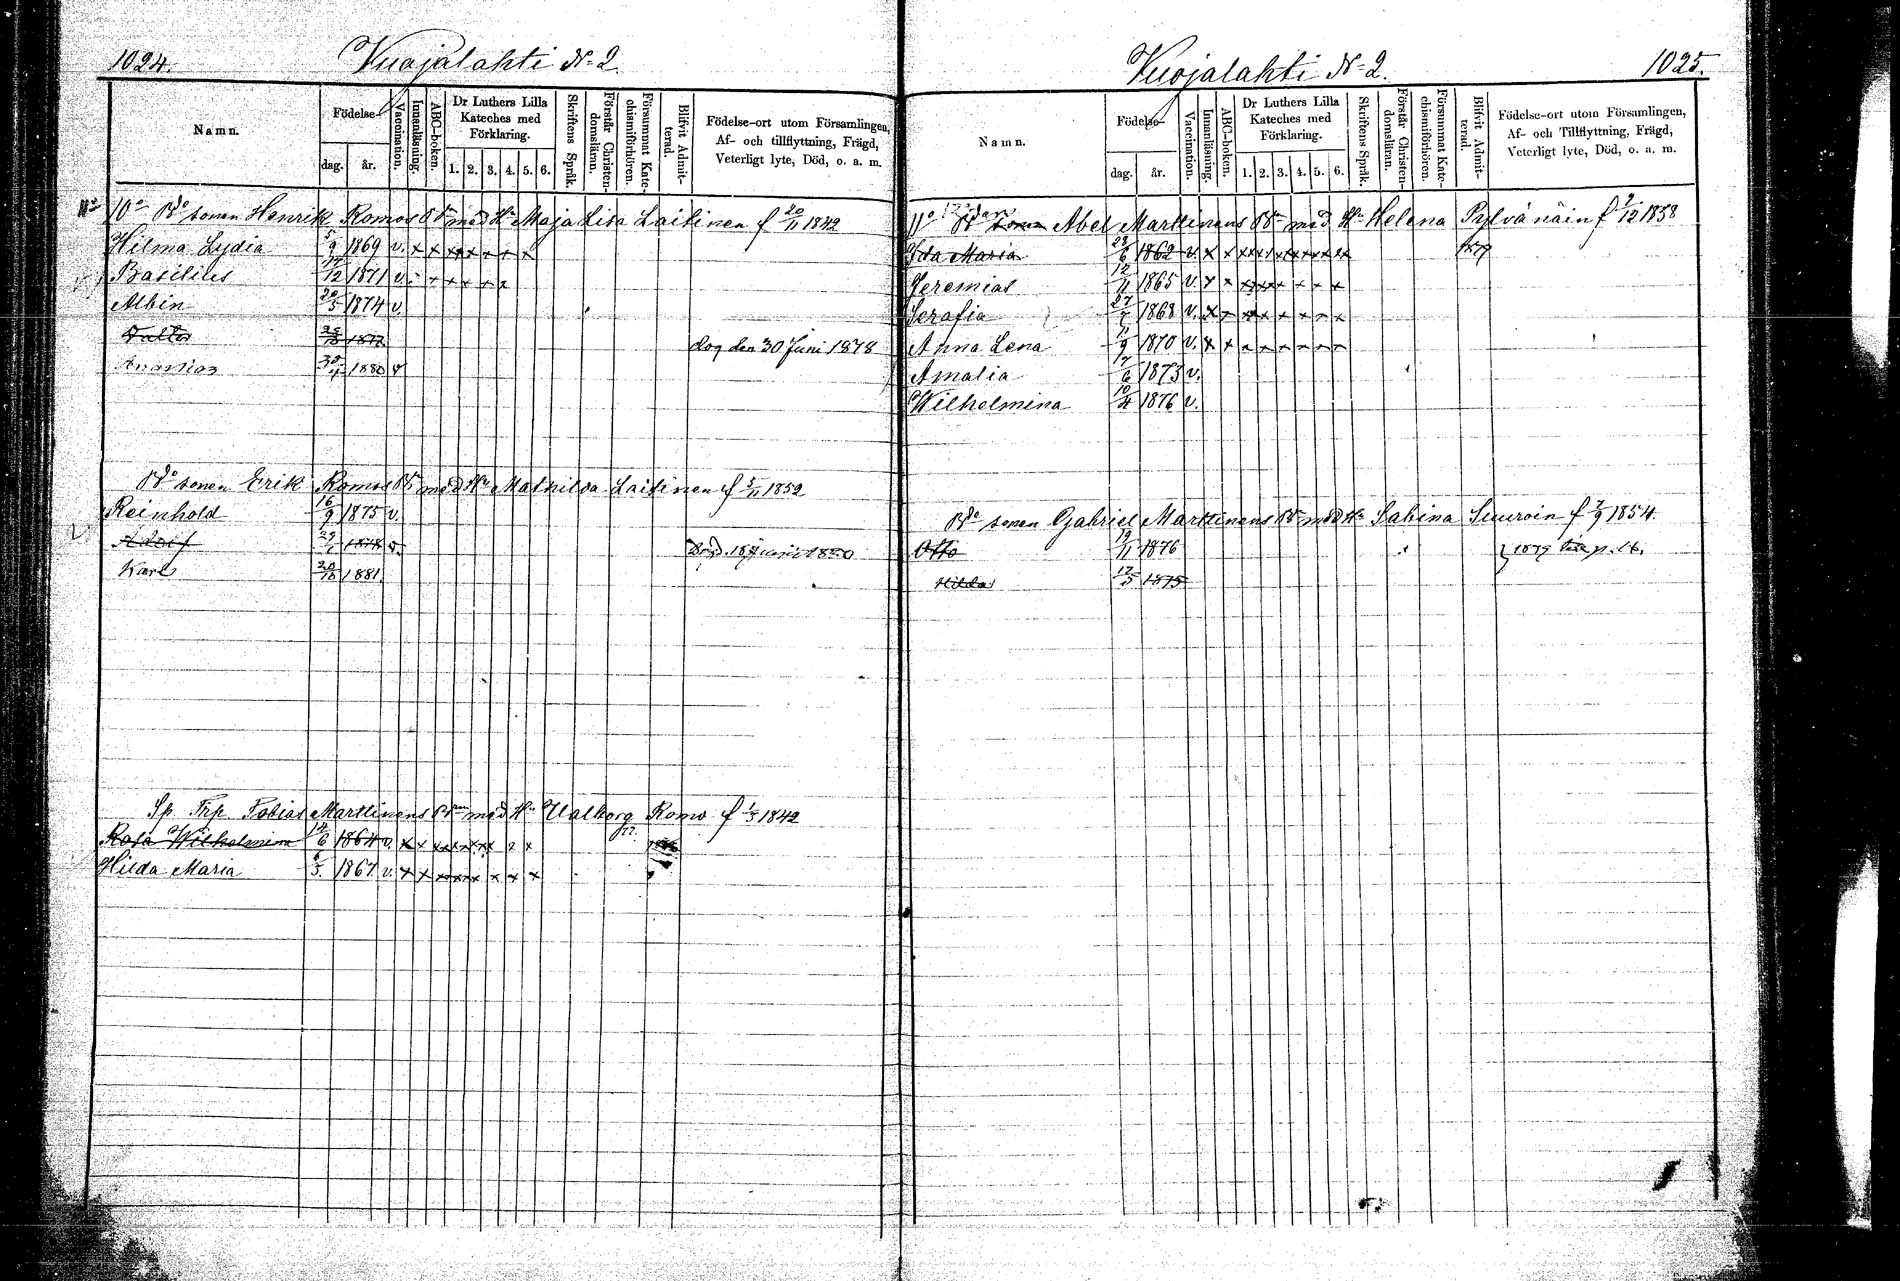 1024.
Vuojalahti No 2.
Namn.
Födelse-
dag. år.
Vaccination.
Innanläsning.
ABC-boken.
Dr Luthers Lilla Kateches med Förklaring.
1. 2. 3. 4. 5. 6.
Skriftens Språk.
Förstår Christendomsläran.
Försummat Katechismiförhören.
Blifvit Admitterad.
Födelse-ort utom Församlingen, Af- och tillflyttning, Frägd, Veterligt lyte, Död, o. a. m.
10o Bdo sonen Henrik Romos Bn med Hu Maja Lisa Laitinen f 20/11 1842
Hilma Lydia 5/9 1869 v. x x x x x x x x
Basilius 17/12 1871 v.
Albin 20/5 1874 v.
dog den 30 Juni 1878
Ananias 1880 v
Bdo sonen Erik Romos Bn med Hu Mathilda Laitinen f 5/11 1852
Reinhold 16/9 1875 v.
Adolf 1878 v.
Karl 20/10 1881.
Sp Trp Tobias Marttinens Bn med Hu Valborg Romo f 1/3 1842
Rosa Wilhelmina 14/6 1864 v.
Hilda Maria 1867 v.
Vuojalahti No 2.
1025.
Namn.
Födelse-
dag. år.
Vaccination.
Innanläsning.
ABC-boken.
Dr Luthers Lilla Kateches med Förklaring.
1. 2. 3. 4. 5. 6.
Skriftens Språk.
Förstår Christendomsläran.
Försummat Katechismiförhören.
Blifvit Admitterad.
Födelse-ort utom Församlingen, Af- och Tillflyttning, Frägd, Veterligt lyte, Död, o. a. m.
11o Bdo sonen Abel Marttinens Bn med Hu Helena Pylvänäin f 2/12 1838
Ida Maria 28/6 1862 v. 1879
Jeremias 12/11 1865 v.
Serafia 1868 v.
Anna Lena 11/9 1870 v.
Amalia 17/6 1873 v.
Wilhelmina 10/4 1876 v.
Bdo sonen Gabriel Marttinens Bn med Hu Sabina Suuroin f 7/9 1854.
Otto 19/11 1876
Hilda 17/5 1875